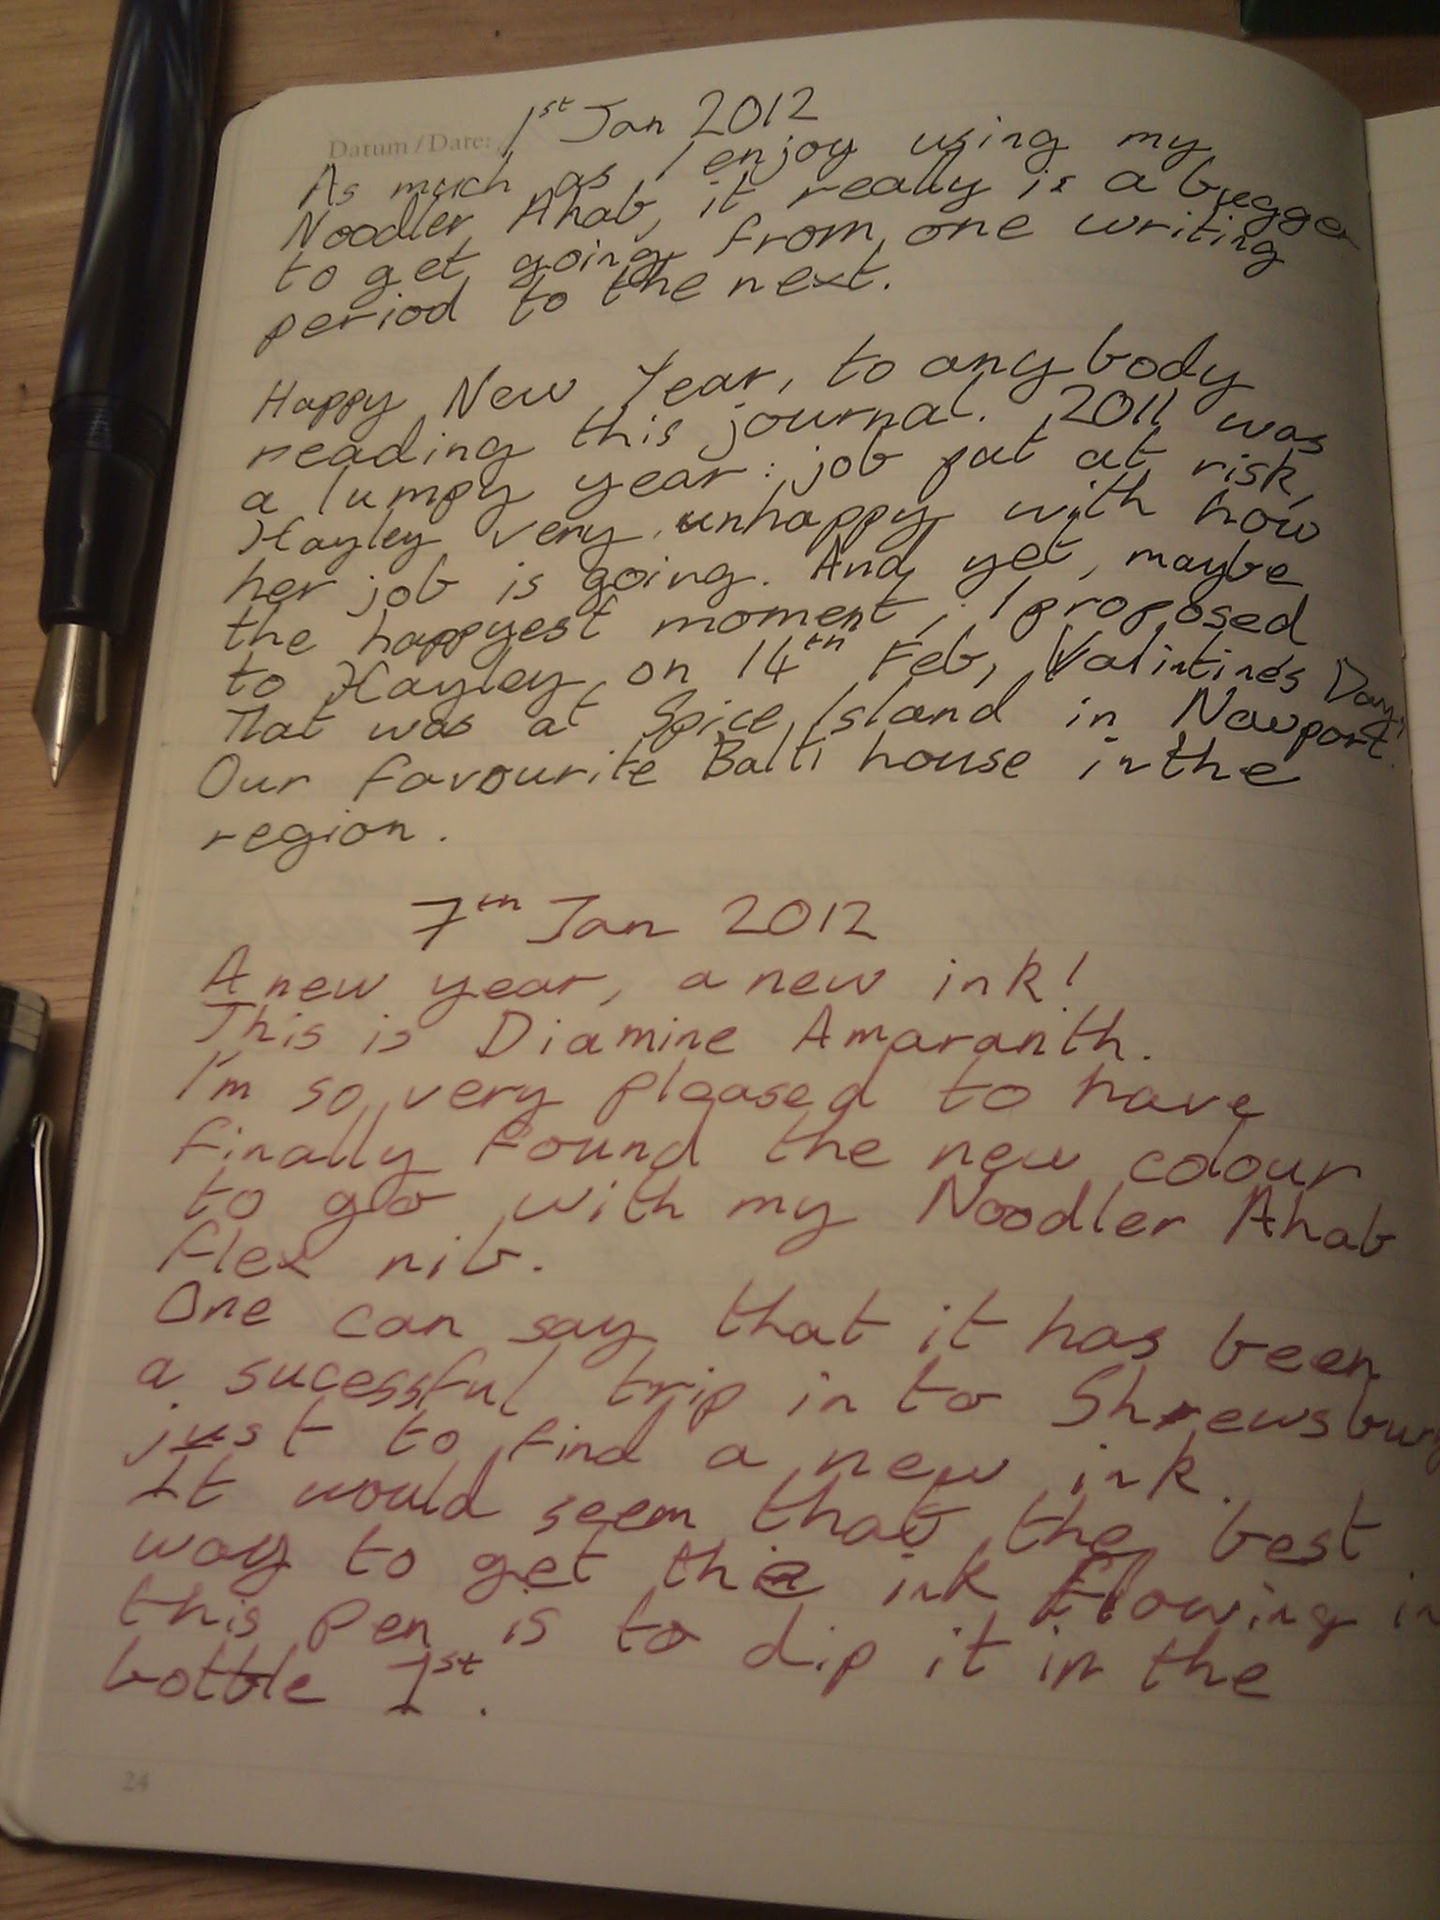 Datum / Date: 1st Jan 2012
As much as I enjoy using my
Noodler Ahab, it really is a bugger
to get going from one writing
period to the next.
Happy New Year, to anybody
reading this journal. 2011 was
a lumpy year: job put at risk,
Hayley very unhappy with how
her job is going. And yet, maybe
the happyest moment, I proposed
to Hayley on 14th Feb, Valintines Day!
That was at Spice Island in Newport.
Our favourite Balti house in the
region.
7th Jan 2012
A new year, a new ink!
This is Diamine Amaranth.
I'm so very pleased to have
finally found the new colour
to go with my Noodler Ahab
flex nib.
One can say that it has been
a sucessful trip in to Shrewsbury
just to find a new ink.
It would seem that the best
way to get the ink flowing in
this pen is to dip it in the
bottle 1st.
24